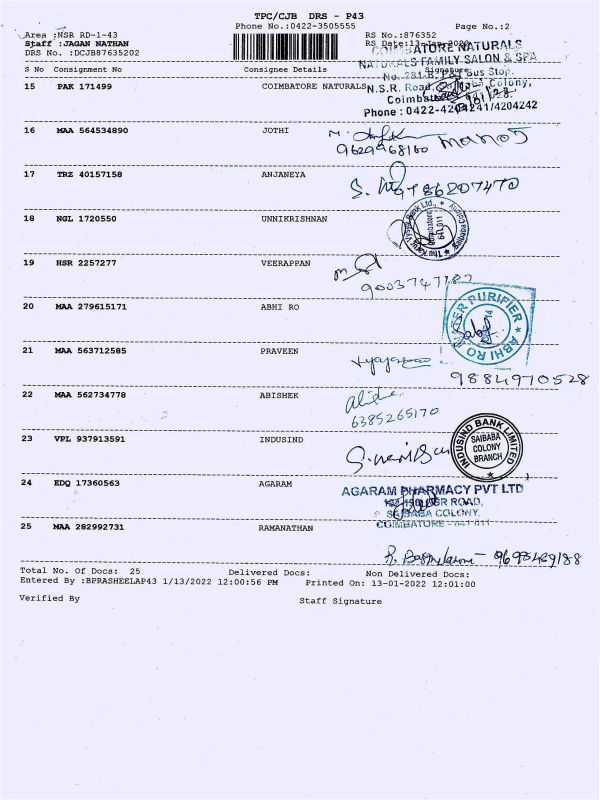 TPC/CJB DRS - P43
Phone No.:0422-3505555 Page No.:2
Area :NSR RD-1-43 RS No.:876352
Staff :JAGAN NATHAN RS Date:13-Jan-2022
DRS No. :DCJB87635202
COIMBATORE NATURALS
NATURALS FAMILY SALON & SPA
S No Consignment No Consignee Details Signature
No. 281-B, P&T Bus Stop,
N.S.R. Road, Colony,
Phone : 0422-4204241/4204242
15 PAK 171499 COIMBATORE NATURALS
16 MAA 564534890 JOTHI
9629968160
17 TRZ 40157158 ANJANEYA
18 NGL 1720550 UNNIKRISHNAN
19 HSR 2257277 VEERAPPAN
20 MAA 279615171 ABHI RO
WATER PURIFIER
ABHI RO
21 MAA 563712585 PRAVEEN
9884970528
22 MAA 562734778 ABISHEK
6385265170
23 VPL 937913591 INDUSIND
INDUSIND BANK LIMITED
SAIBABA
COLONY
BRANCH
24 EDQ 17360563 AGARAM
AGARAM PHARMACY PVT LTD
NSR ROAD,
SAIBABA COLONY,
COIMBATORE - 641 011
25 MAA 282992731 RAMANATHAN
Total No. Of Docs: 25 Delivered Docs: Non Delivered Docs:
Entered By :BPRASHEELAP43 1/13/2022 12:00:56 PM Printed On: 13-01-2022 12:01:00
Verified By Staff Signature